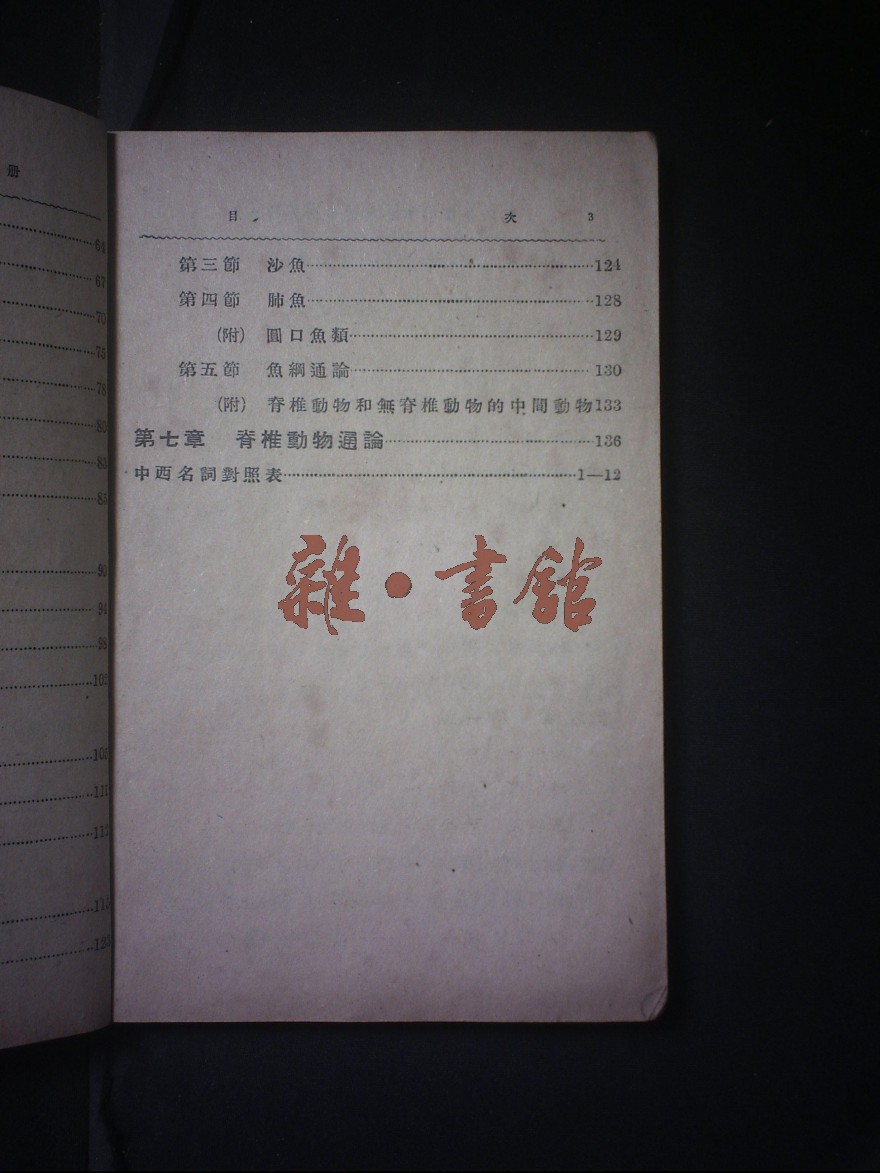 册
64
67
70
75
78
80
83
85
90
94
98
111
目 次 3
第三節 沙魚……124
第四節 肺魚……128
(附) 圓口魚類……129
第五節 魚綱通論……130
(附) 脊椎動物和無脊椎動物的中間動物133
第七章 脊椎動物通論……136
中西名詞對照表……1—12
雜·書館